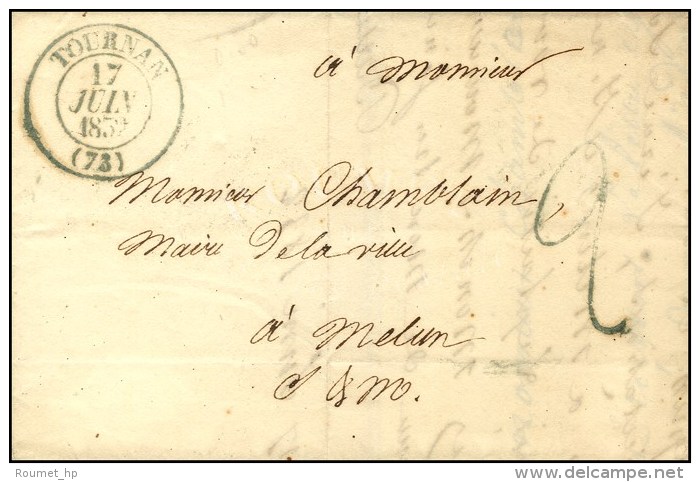 TOURNAN
17
JUIN
1839
(73)
à Monsieur
Monsieur Chamblain,
Maire de la ville
à Melun
S & M.
2
Roumet_hp
www.delcampe.net